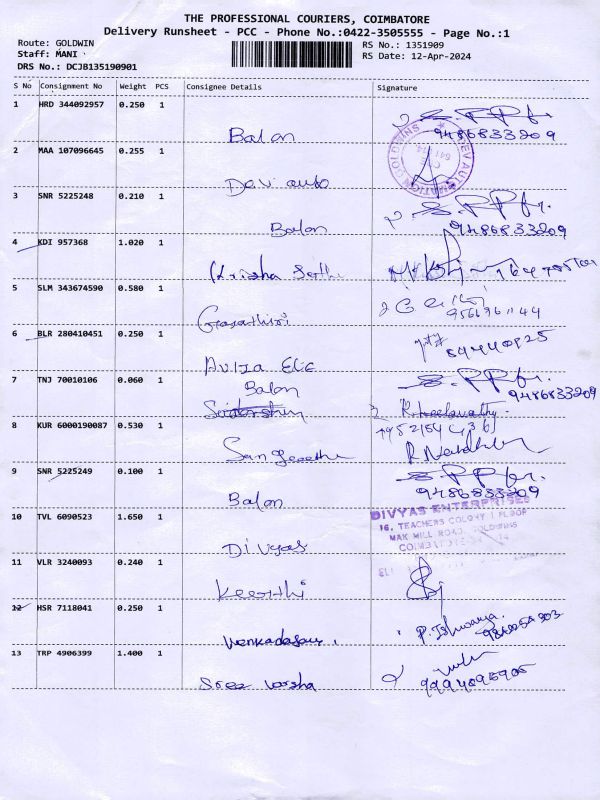 THE PROFESSIONAL COURIERS, COIMBATORE
Delivery Runsheet - PCC - Phone No.:0422-3505555 - Page No.:1
Route: GOLDWIN RS No.: 1351909
Staff: MANI RS Date: 12-Apr-2024
DRS No.: DCJB135190901
S No Consignment No Weight PCS Consignee Details Signature
1 HRD 344092957 0.250 1
Balan 9486833209
2 MAA 107096645 0.255 1
Devi auto
3 SNR 5225248 0.210 1
Balan 9486833209
4 KDI 957368 1.020 1
5 SLM 343674590 0.580 1
Gayathiri
6 BLR 280410451 0.250 1
7 TNJ 70010106 0.060 1
Balan 9486833209
8 KUR 6000190087 0.530 1
Sangeetha
9 SNR 5225249 0.100 1
Balan 9486833209
10 TVL 6090523 1.650 1
DIVYAS ENTERPRISES
16, TEACHERS COLONY I FLOOR
MAK MILL ROAD, GOLDWINS
Divyas
11 VLR 3240093 0.240 1
Keerthi
12 HSR 7118041 0.250 1
P. Ishwarya
13 TRP 4906399 1.400 1
Sree Varsha